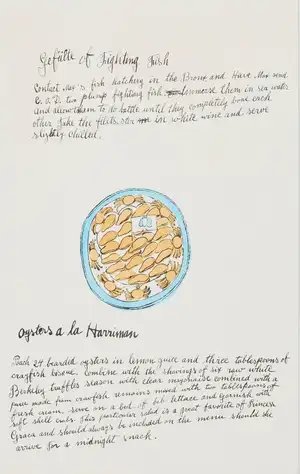 Gefüllte of Fighting Fish
Contact Max's fish hatchery in the Bronx and Have Max send
C.O.D. two plump fighting fish. Immerse them in sea water
and allow them to do battle until they completely bone each
other. Take the filets, stew in white wine and serve
slightly chilled.
Oysters a la Harriman
Poach 24 bearded oysters in lemon juice and three tablespoons of
crayfish bisque. Combine with the shavings of six raw white
Berkeley truffles season with clear mayonaise combined with a
puree made from crawfish remains mixed with two tablespoons of
fresh cream. Serve on a bed of bib lettace and garnish with
soft shell crabs. This particular salad is a great favorite of Princess
Graca and should always be included in the menu should she
arrive for a midnight snack.